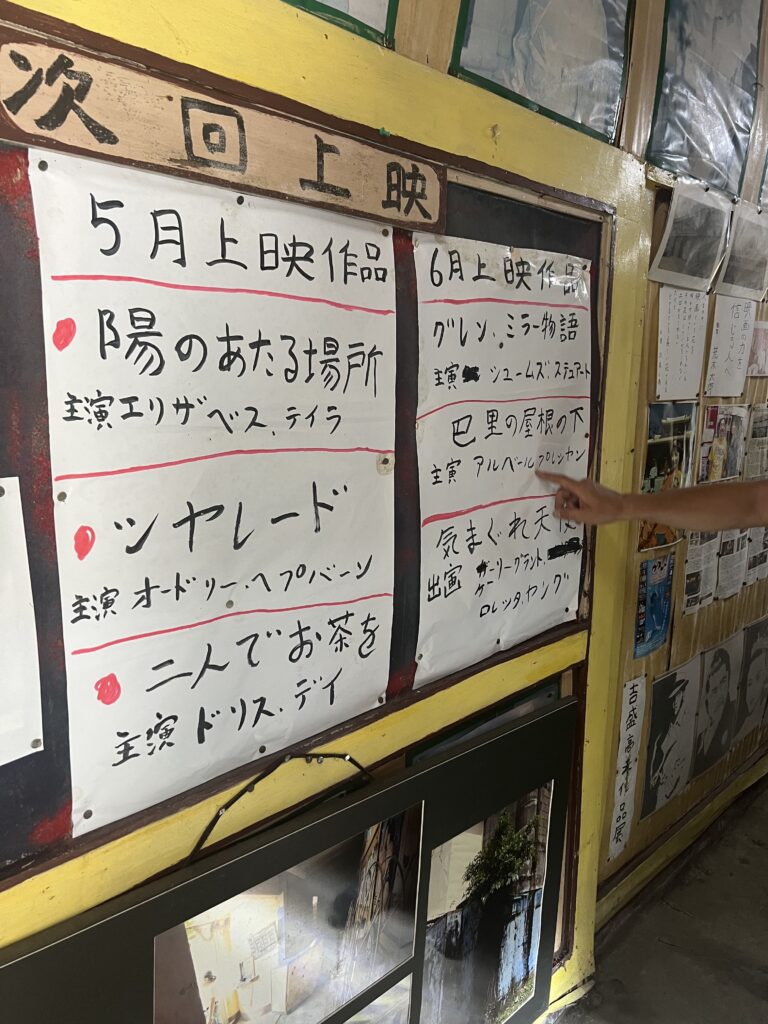 次回上映
5月上映作品
陽のあたる場所
主演エリザベス、テイラ
シャレード
主演 オードリー・ヘプバーン
二人でお茶を
主演 ドリス、デイ
6月上映作品
グレン、ミラー物語
主演 ジェームズ、ステュアート
巴里の屋根の下
主演 アルベール プレジャン
気まぐれ天使
出演 ケーリーグラント、
ロレッタ、ヤング
映画の力を
信じる人へ
吉盛高美作品展